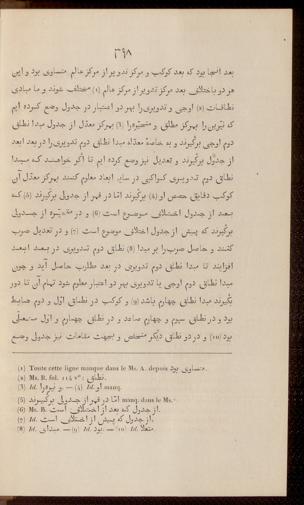 ٣٩٨
بعد آنجا بود که بعد کوکب و مرکز تدویر از مرکز عالم متساوی بود و این
هر دو باختلاف بعد مرکز تدویر از مرکز عالم (١) مختلف شوند و ما مبادی
نطاقات (٢) اوجی و تدویری را بهر دو اعتبار در جدول وضع کرده ایم
که نیّرین را بمرکز مطلق و متحیّره را (٣) بمرکز معدّل از جدول مبدا نطاق
دوم اوجی برگیرند و به خاصّهٔ معدّله مبدا نطاق دوم تدویری را در بعد ابعد
از جدول برگیرند و تعدیل نیز وضع کرده ایم تا اگر خواهند که مبدا
نطاق دوم تدویری کواکب در سایر ابعاد معلوم کنند بمرکز معدّل آن
کوکب دقایق حصص او (٤) برگیرند امّا در قمر از جدولی برگیرند (٥) که
بعد از جدول اختلاف موضوع است (٦) و در متحیّره از جدولی
برگیرند که پیش از جدول اختلاف موضوع است (٧) و در تعدیل ضرب
کنند و حاصل ضرب را بر مبدا (٨) نطاق دوم تدویری در بعد ابعد
افزایند تا مبدا نطاق دوم تدویری در بعد مطلوب حاصل آید و چون
مبدا نطاق دوم اوجی یا تدویری بهر دو اعتبار معلوم شود تمام آن تا دور
بگیرند مبدا نطاق چهارم باشد (٩) و کوکب در نطاق اوّل و دوم هابط
بود و در نطاق سیوم و چهارم صاعد و در نطاق چهارم و اوّل مستعلی
بود (١٠) و در دو نطاق دیگر منخفض و بجهت مقامات نیز جدول وضع
(1) Toute cette ligne manque dans le Ms. A. depuis متساوی بود.
(2) Ms. B. fol. نطاق
(3) Id. (4) Id. او manq.
(5) امّا در قمر از جدولی برگیرند manq. dans le Ms.
(6) Ms. B. از جدول که بعد از اختلاف است.
(7) Id. از جدول که پیش از اختلاف است.
(8) Id. مبدای. (9) Id. بود. (10) Id.